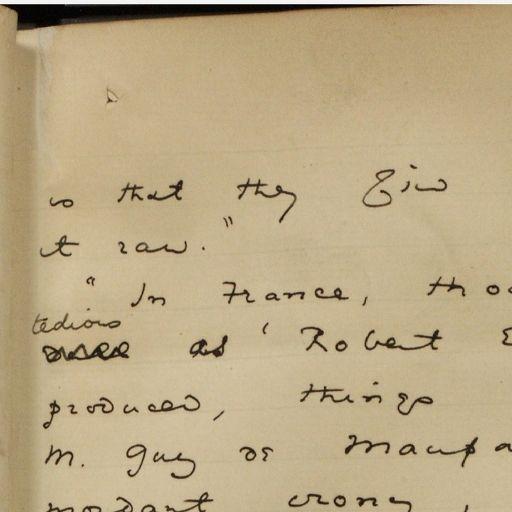 is that they give
it raw."
"In France, thou
tedious
as 'Robert E
produced, things
M. Guy de Maupa
mordant irony,